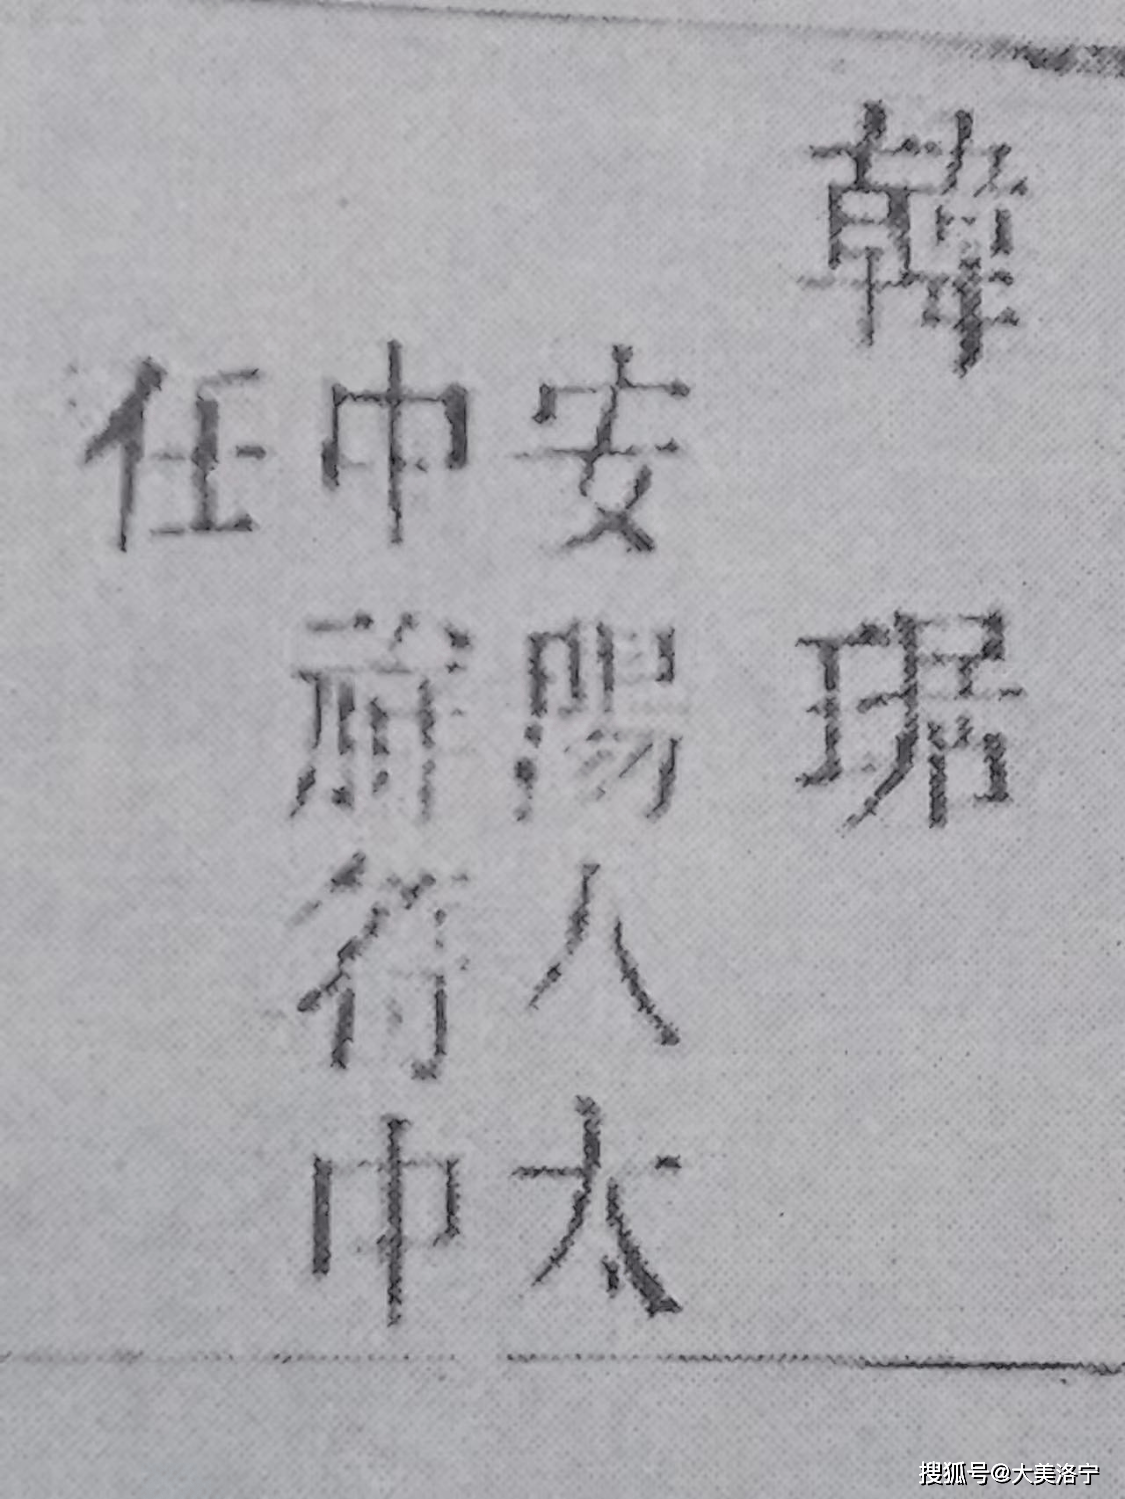 韓琚
安陽人太
中祥符中
任
搜狐号@大美洛宁